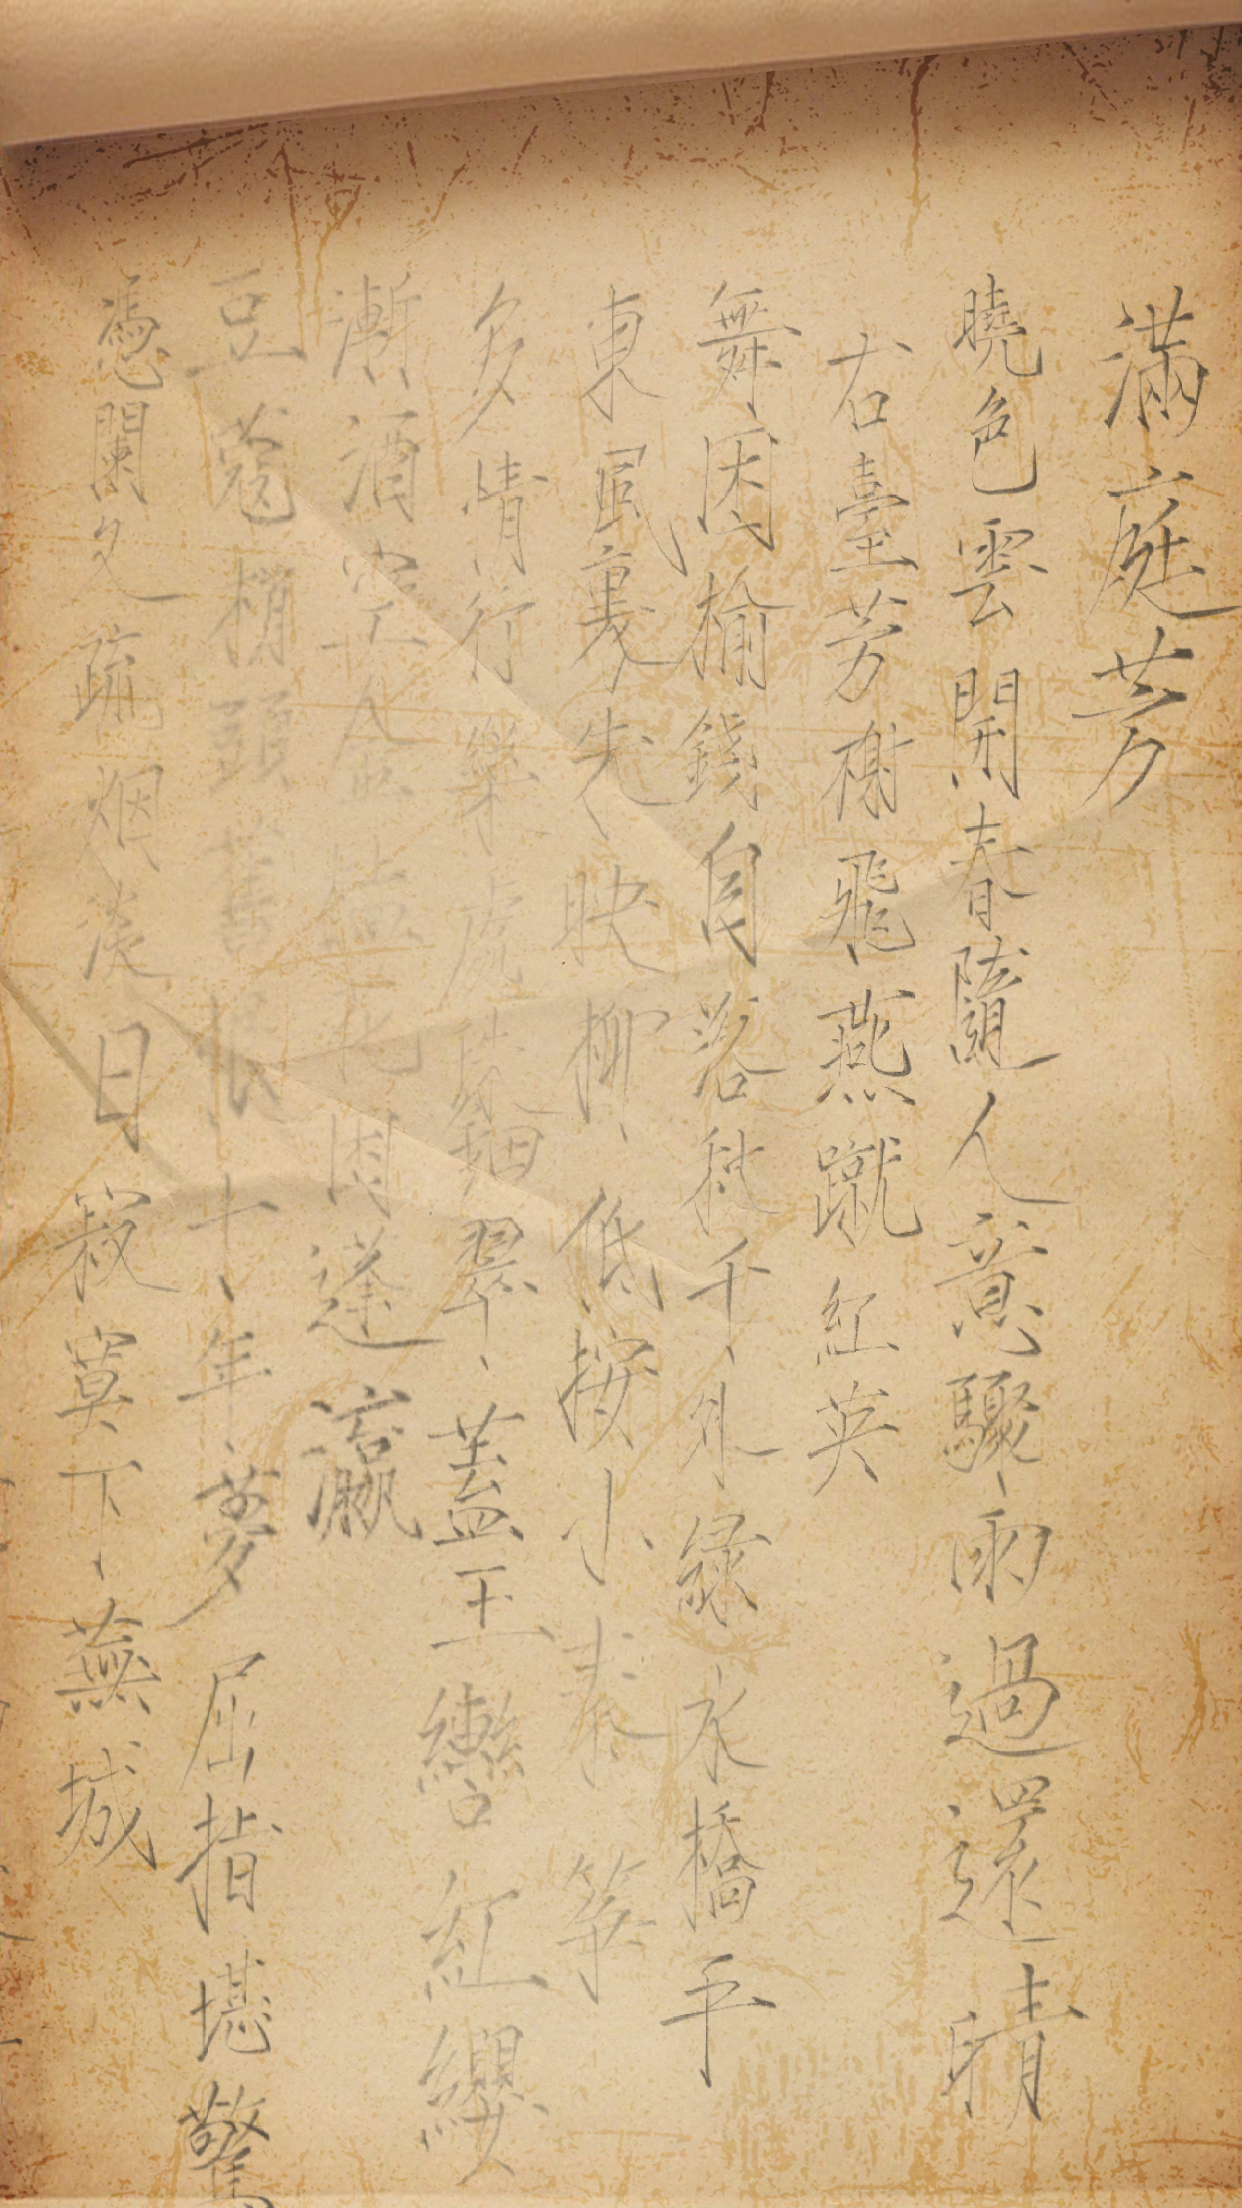 滿庭芳
曉色雲開春隨人意驟雨過還晴
古臺芳榭飛燕蹴紅英
舞困榆錢自落秋千外綠水橋平
東風裏朱映柳低按小秦筝
多情行樂處珠鈿翠蓋玉轡紅纓
漸酒空金榼花困蓬瀛
豆蔻梢頭舊恨十年夢屈指堪驚
憑闌久疏烟淡日寂寞下蕪城